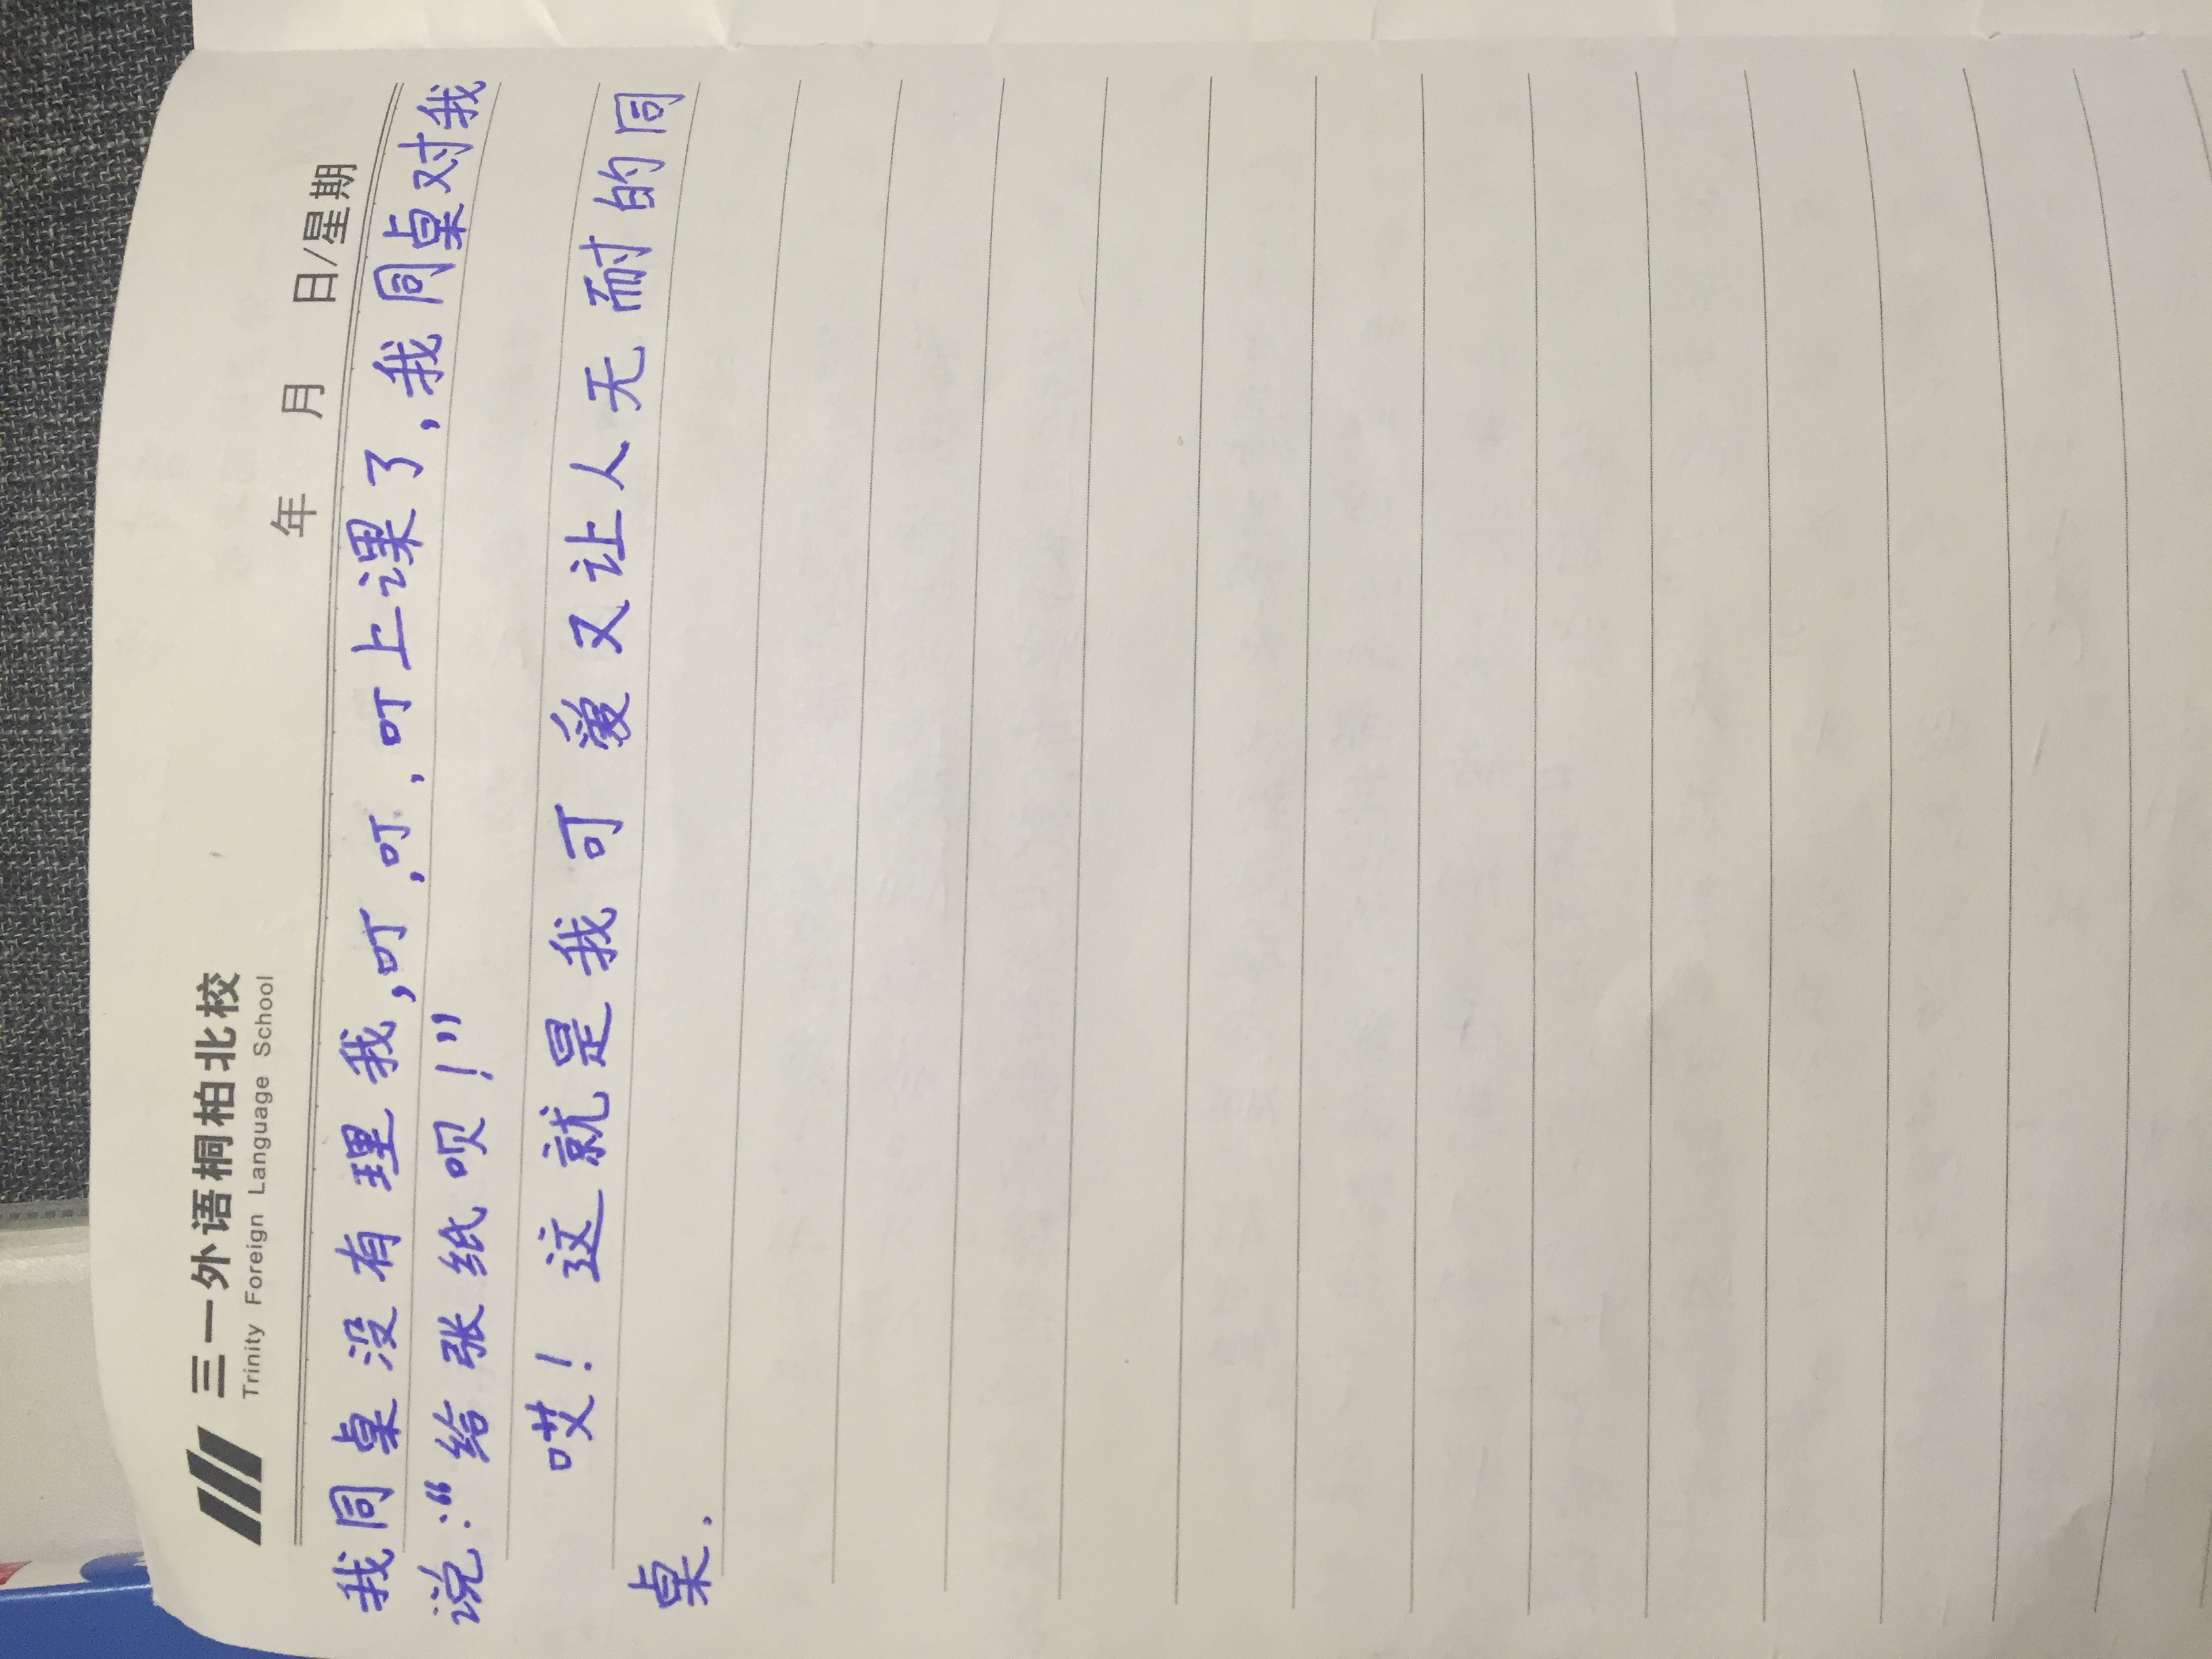 三一外语桐柏北校
Trinity Foreign Language School
年 月 日/星期
我同桌没有理我,叮,叮,叮上课了,我同桌对我
说:“给张纸呗!”
哎!这就是我可爱又让人无耐的同
桌.